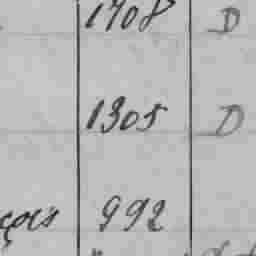 1708 D
1305 D
çois 992